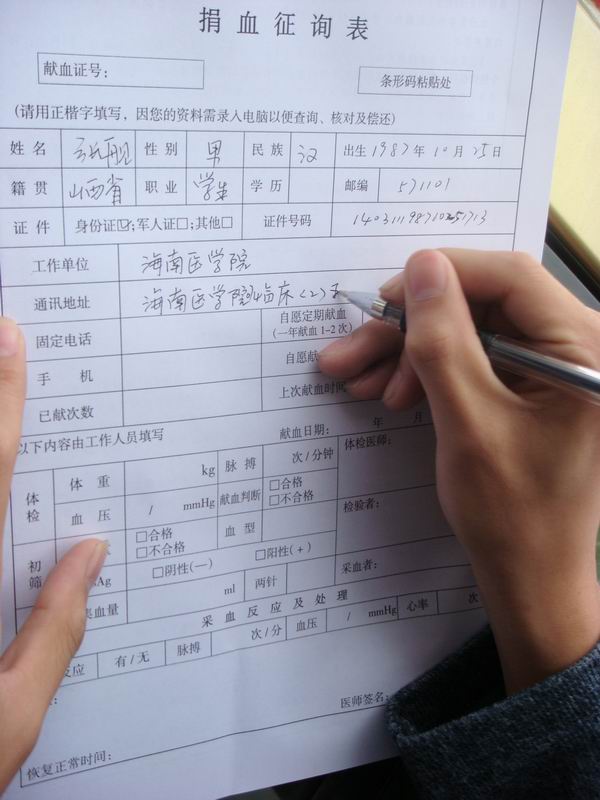 捐血征询表
献血证号：
条形码粘贴处
(请用正楷字填写，因您的资料需录入电脑以便查询、核对及偿还)
姓名 性别 男 民族 汉 出生 1987年10月25日
籍贯 山西省 职业 学生 学历 邮编 571101
证件 身份证☑;军人证□;其他□ 证件号码
工作单位 海南医学院
通讯地址 海南医学院临床(2)
固定电话 自愿定期献血
(一年献血1-2次)
手机 自愿献
已献次数 上次献血时间
以下内容由工作人员填写 献血日期： 年 月
体检 体重 kg 脉搏 次/分钟 体检医师：
血压 / mmHg 献血判断 □合格
□不合格
初筛 □合格
□不合格 血型 检验者：
Ag □阴性(—) □阳性(+)
集血量 ml 两针 采血者：
采血反应及处理
反应 有/无 脉搏 次/分 血压 / mmHg 心率 次
医师签名：
恢复正常时间：